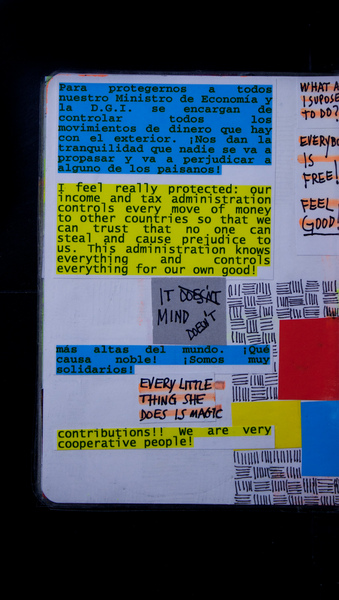 Para protegernos a todos
nuestro Ministro de Economía y
la D.G.I. se encargan de
controlar todos los
movimientos de dinero que hay
con el exterior. ¡Nos dan la
tranquilidad que nadie se va a
propasar y va a perjudicar a
alguno de los paisanos!
I feel really protected: our
income and tax administration
controls every move of money
to other countries so that we
can trust that no one can
steal and cause prejudice to
us. This administration knows
everything and controls
everything for our own good!
IT DOESN'T
MIND
DOESN'T
más altas del mundo. ¡Qué
causa noble! ¡Somos muy
solidarios!
EVERY LITTLE
THING SHE
DOES IS MAGIC
contributions!! We are very
cooperative people!
WHAT A
I SUPOSE
TO DO?
EVERYBO
IS
FREE!
FEEL
GOOD!